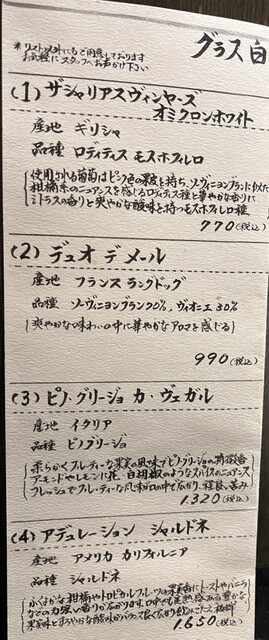 グラス白
*リスト以外にもご用意しております
お気軽にスタッフへお声かけ下さい
(1) ザシャリアスヴィンヤーズ
オミクロンホワイト
産地 ギリシャ
品種 ロディティス モスホフィレロ
使用される葡萄はピンク色の果皮を持ち、ソーヴィニヨンブランに似た
柑橘系のニュアンスを感じるロディティス種と華やかな香りに
シトラスの香りと爽やかな酸味を持つモスホフィレロ種
770(税込)
(2) デュオ デ メール
産地 フランス ラングドッグ
品種 ソーヴィニヨンブラン70%、ヴィオニエ30%
爽やかな味わいの中に華やかなアロマを感じる
990(税込)
(3) ピノ・グリージョ カ・ヴェガル
産地 イタリア
品種 ピノグリージョ
柔らかくフルーティーな果実の風味でピノグリージョの特徴香
アーモンドやレモンに花、白胡椒のようなスパイスのニュアンス
フレッシュでフルーティーな
1320(税込)
(4) アデュレーション シャルドネ
産地 アメリカ カリフォルニア
品種 シャルドネ
柑橘やトロピカルフルーツの果実香にトーストやバニラ
などの力強い香りが広がります
1,650(税込)